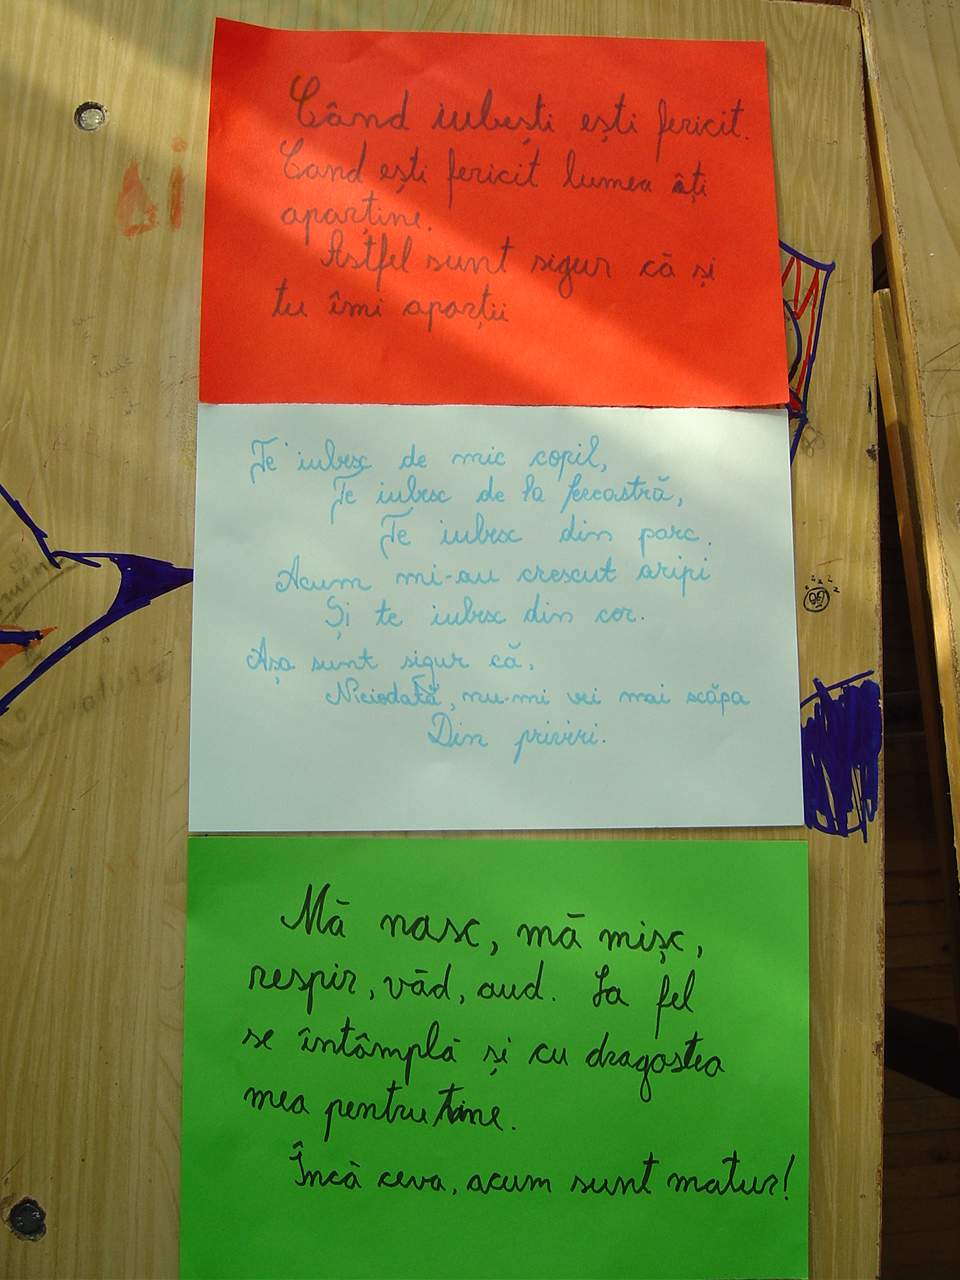 Când iubești ești fericit.
Cand ești fericit lumea âți
aparține.
Astfel sunt sigur că și
tu îmi aparții
Te iubesc de mic copil,
Te iubesc de la fereastră,
Te iubesc din parc.
Acum mi-au crescut aripi
Și te iubesc din cer.
Așa sunt sigur că,
Niciodată, nu-mi vei mai scăpa
Din priviri.
Mă nasc, mă mișc,
respir, văd, aud. La fel
se întâmplă și cu dragostea
mea pentru tine.
Încă ceva, acum sunt matur!